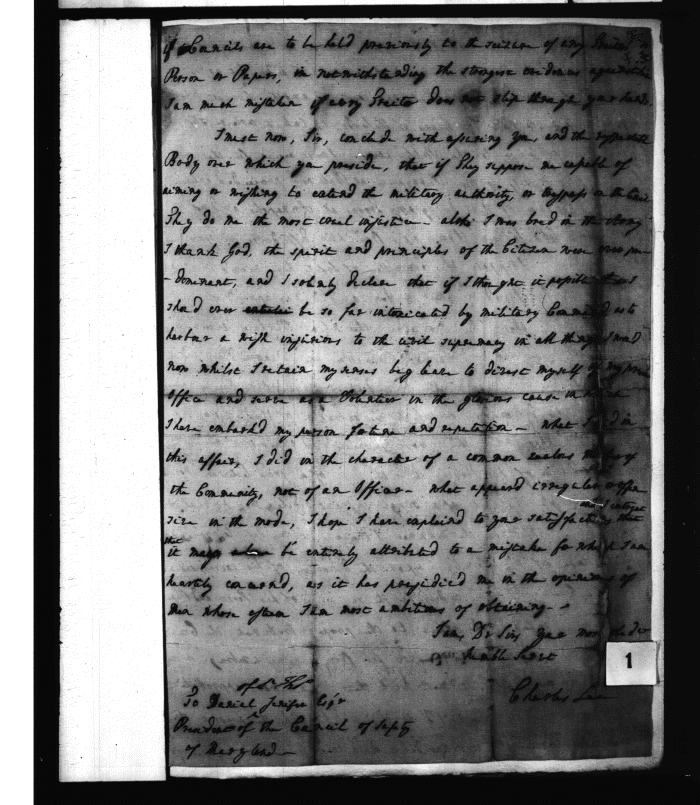 if Councils are to be held previously to the seizure of any Traitor's
Person or Papers, in notwithstanding the strongest evidences against
I am much mistaken if every Traitor does not slip through your hands
I must now, Sir, conclude with assuring you, and the respectable
Body over which you preside, that if They suppose me capable of
aiming or wishing to extend the military authority, or trespass on the Civil
They do me the most cruel injustice - altho' I was bred in the Army
I thank God, the spirit and principles of the Citizen were ever pre
- dominant, and I solemnly declare that if I thought it possible
shou'd ever be so far intoxicated by military Command as to
harbour a wish injurious to the civil supremacy in all things I wou'd
now whilst I retain my senses beg leave to divest myself of my
Office and serve as a Volunteer in the glorious cause in which
I have embark'd my person fortune and reputation - what I did in
this affair, I did in the character of a common zealous Member of
the Community, not of an Officer - what appeared irregular
size in the mode, I hope I have explained to your satisfaction, that
and I intreat
that
it may be entirely attributed to a mistake for which I am
heartily concern'd, as it has prejudiced me in the opinions of
Men whose esteem I am most ambitious of obtaining -
I am, Dr Sir, your most obedt
humble Servt
Charles Lee
of St Thos
To Daniel Jenifer Esqr
President of the Council of Safety
of Maryland -
1